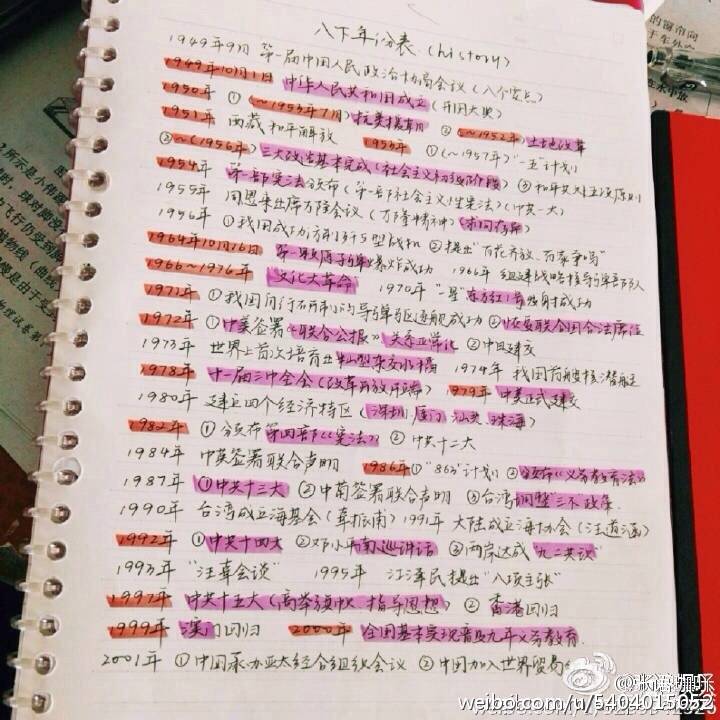 八下年份表 (history)
1949年9月 第一届中国人民政治协商会议 (八个要点)
1949年10月1日 中华人民共和国成立 (开国大典)
1950年 ① (~1953年7月) 抗美援朝 ② (~1952年) 土地改革
1951年 西藏和平解放 1953年 ① (~1957年) "一五"计划
② ~(1956年) 三大改造基本完成 (社会主义初级阶段) ③ 和平共处五项原则
1954年 第一部宪法颁布 (第一部社会主义性宪法) (中共一大)
1955年 周恩来出席万隆会议 (万隆精神) 求同存异
1956年 ① 我国成功 歼5型战机 ② 提出"百花齐放、百家争鸣"
1964年10月16日 第一颗原子弹爆炸成功 1966年 组建战略核导弹部队
1966~1976年 文化大革命 1970年 "一星"东方红1号发射成功
1971年 ① 我国 导弹驱逐舰成功 ② 恢复联合国合法席位
1972年 ① 中美签署《联合公报》关系正常化 ② 中日建交
1973年 世界上首次培育出籼型杂交水稻 1974年 我国首艘核潜艇
1978年 十一届三中全会 (改革开放开端) 1979年 中美正式建交
1980年 建立四个经济特区 (深圳、厦门、汕头、珠海)
1982年 ① 颁布第四部《宪法》 ② 中共十二大
1984年 中英签署联合声明 1986年 ① "863"计划 ② 颁布《义务教育法》
1987年 ① 中共十三大 ② 中葡签署联合声明 ③ 台湾调整"三不"政策
1990年 台湾成立海基会 (辜振甫) 1991年 大陆成立海协会 (汪道涵)
1992年 ① 中共十四大 ② 邓小平南巡讲话 ③ 两岸达成"九二共识"
1993年 "汪辜会谈" 1995年 江泽民提出"八项主张"
1997年 中共十五大 (高举旗帜、指导思想) ② 香港回归
1999年 澳门回归 2000年 全国基本实现普及九年义务教育
2001年 ① 中国承办亚太经合组织会议 ② 中国加入世界贸易
weibo.com/u/5404015052